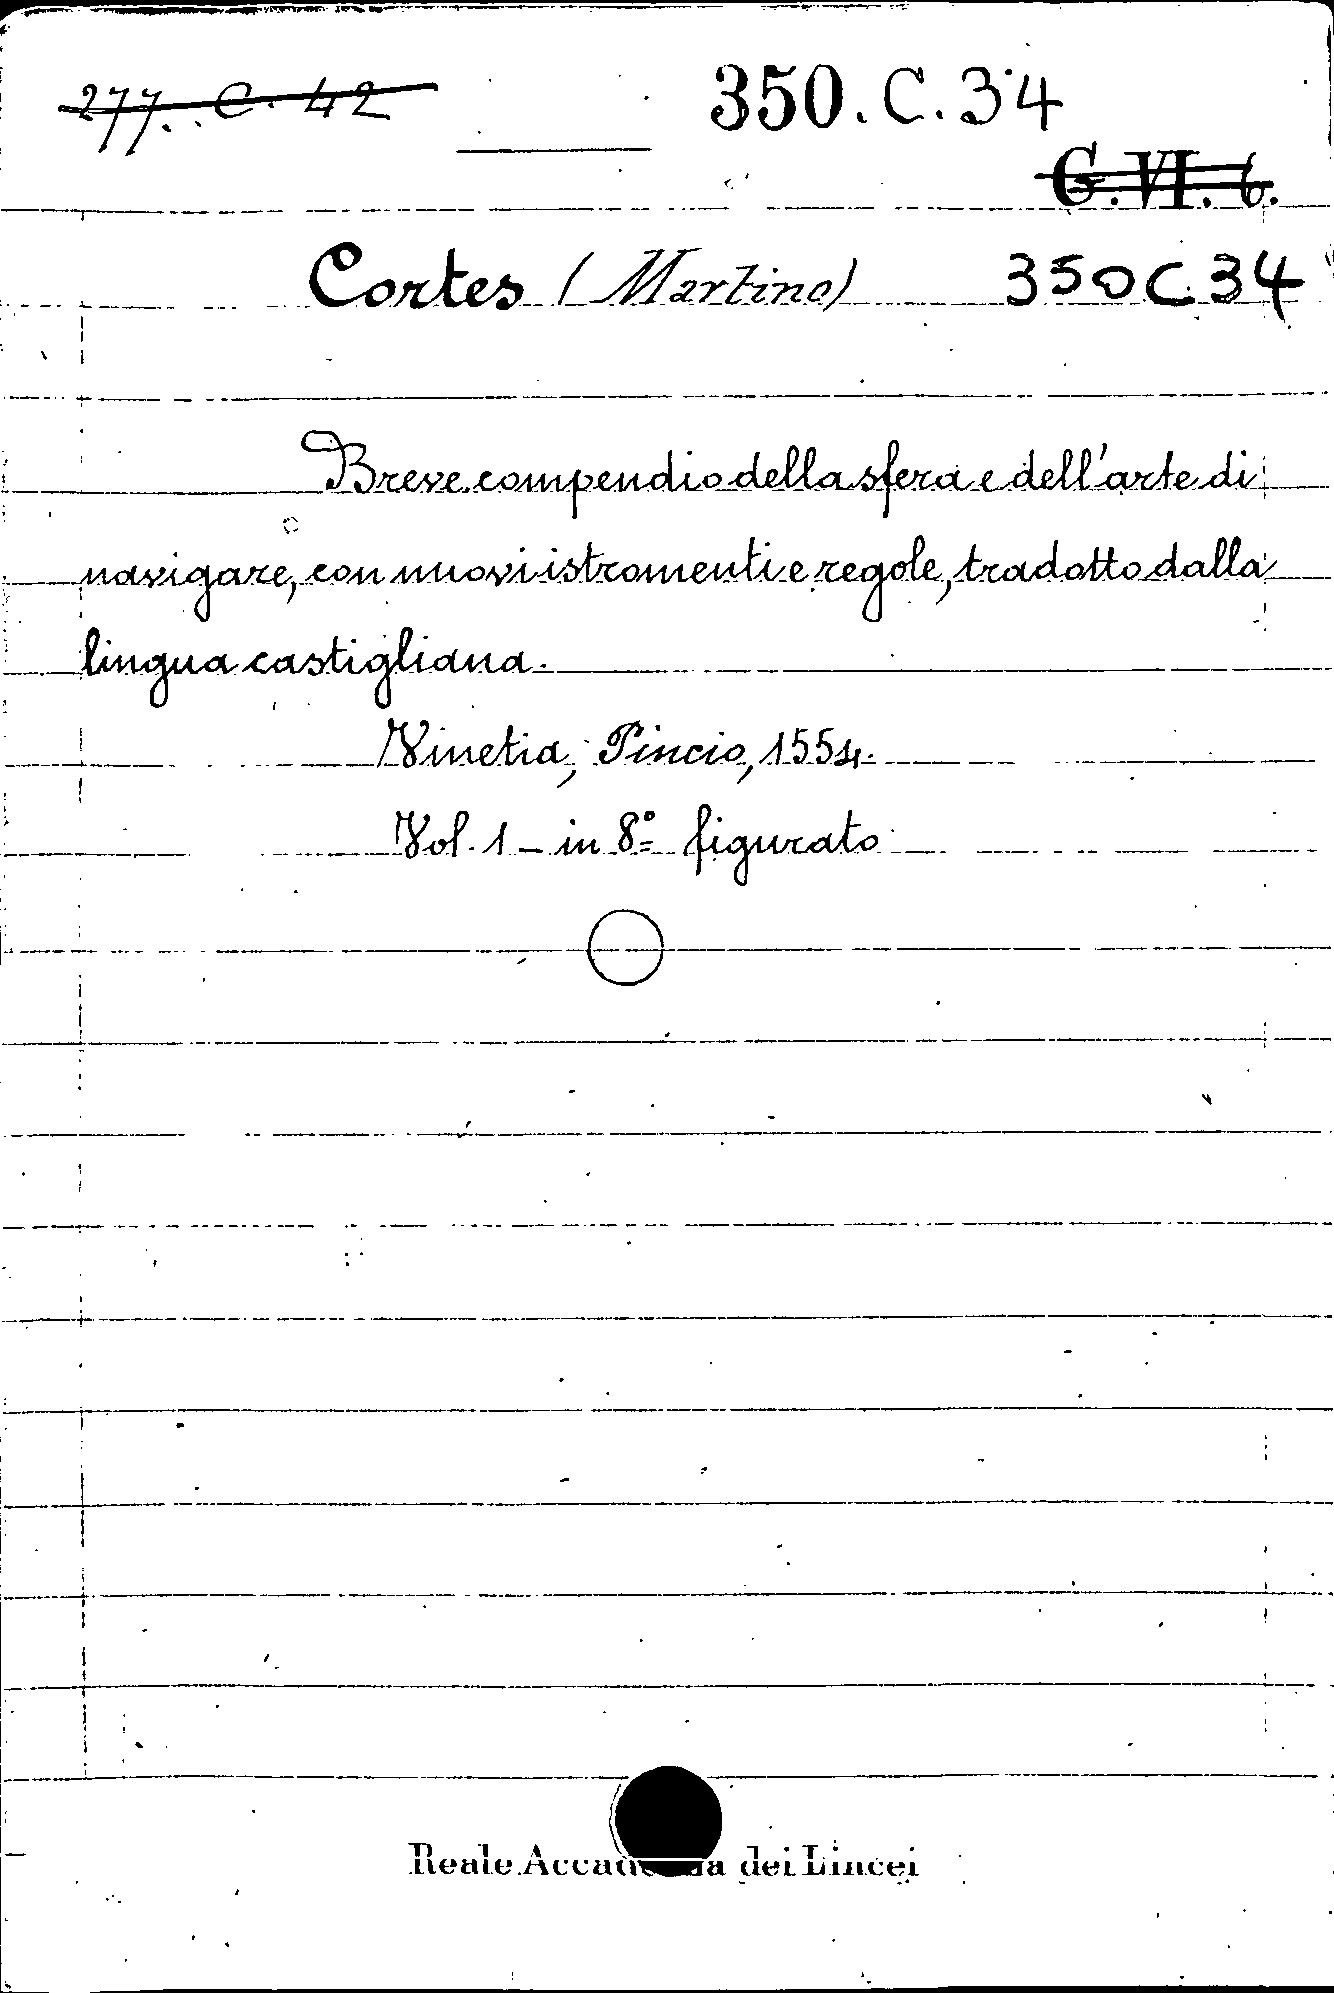 277. C. 42
350. C. 34
G. VI. 6.
Cortes (Martino) 350 C 34
Breve compendio della sfera e dell'arte di
navigare, con nuovi istromenti e regole, tradotto dalla
lingua castigliana.
Vinetia, Pincio, 1554.
Vol. 1 - in 8º figurato
Reale Accademia dei Lincei